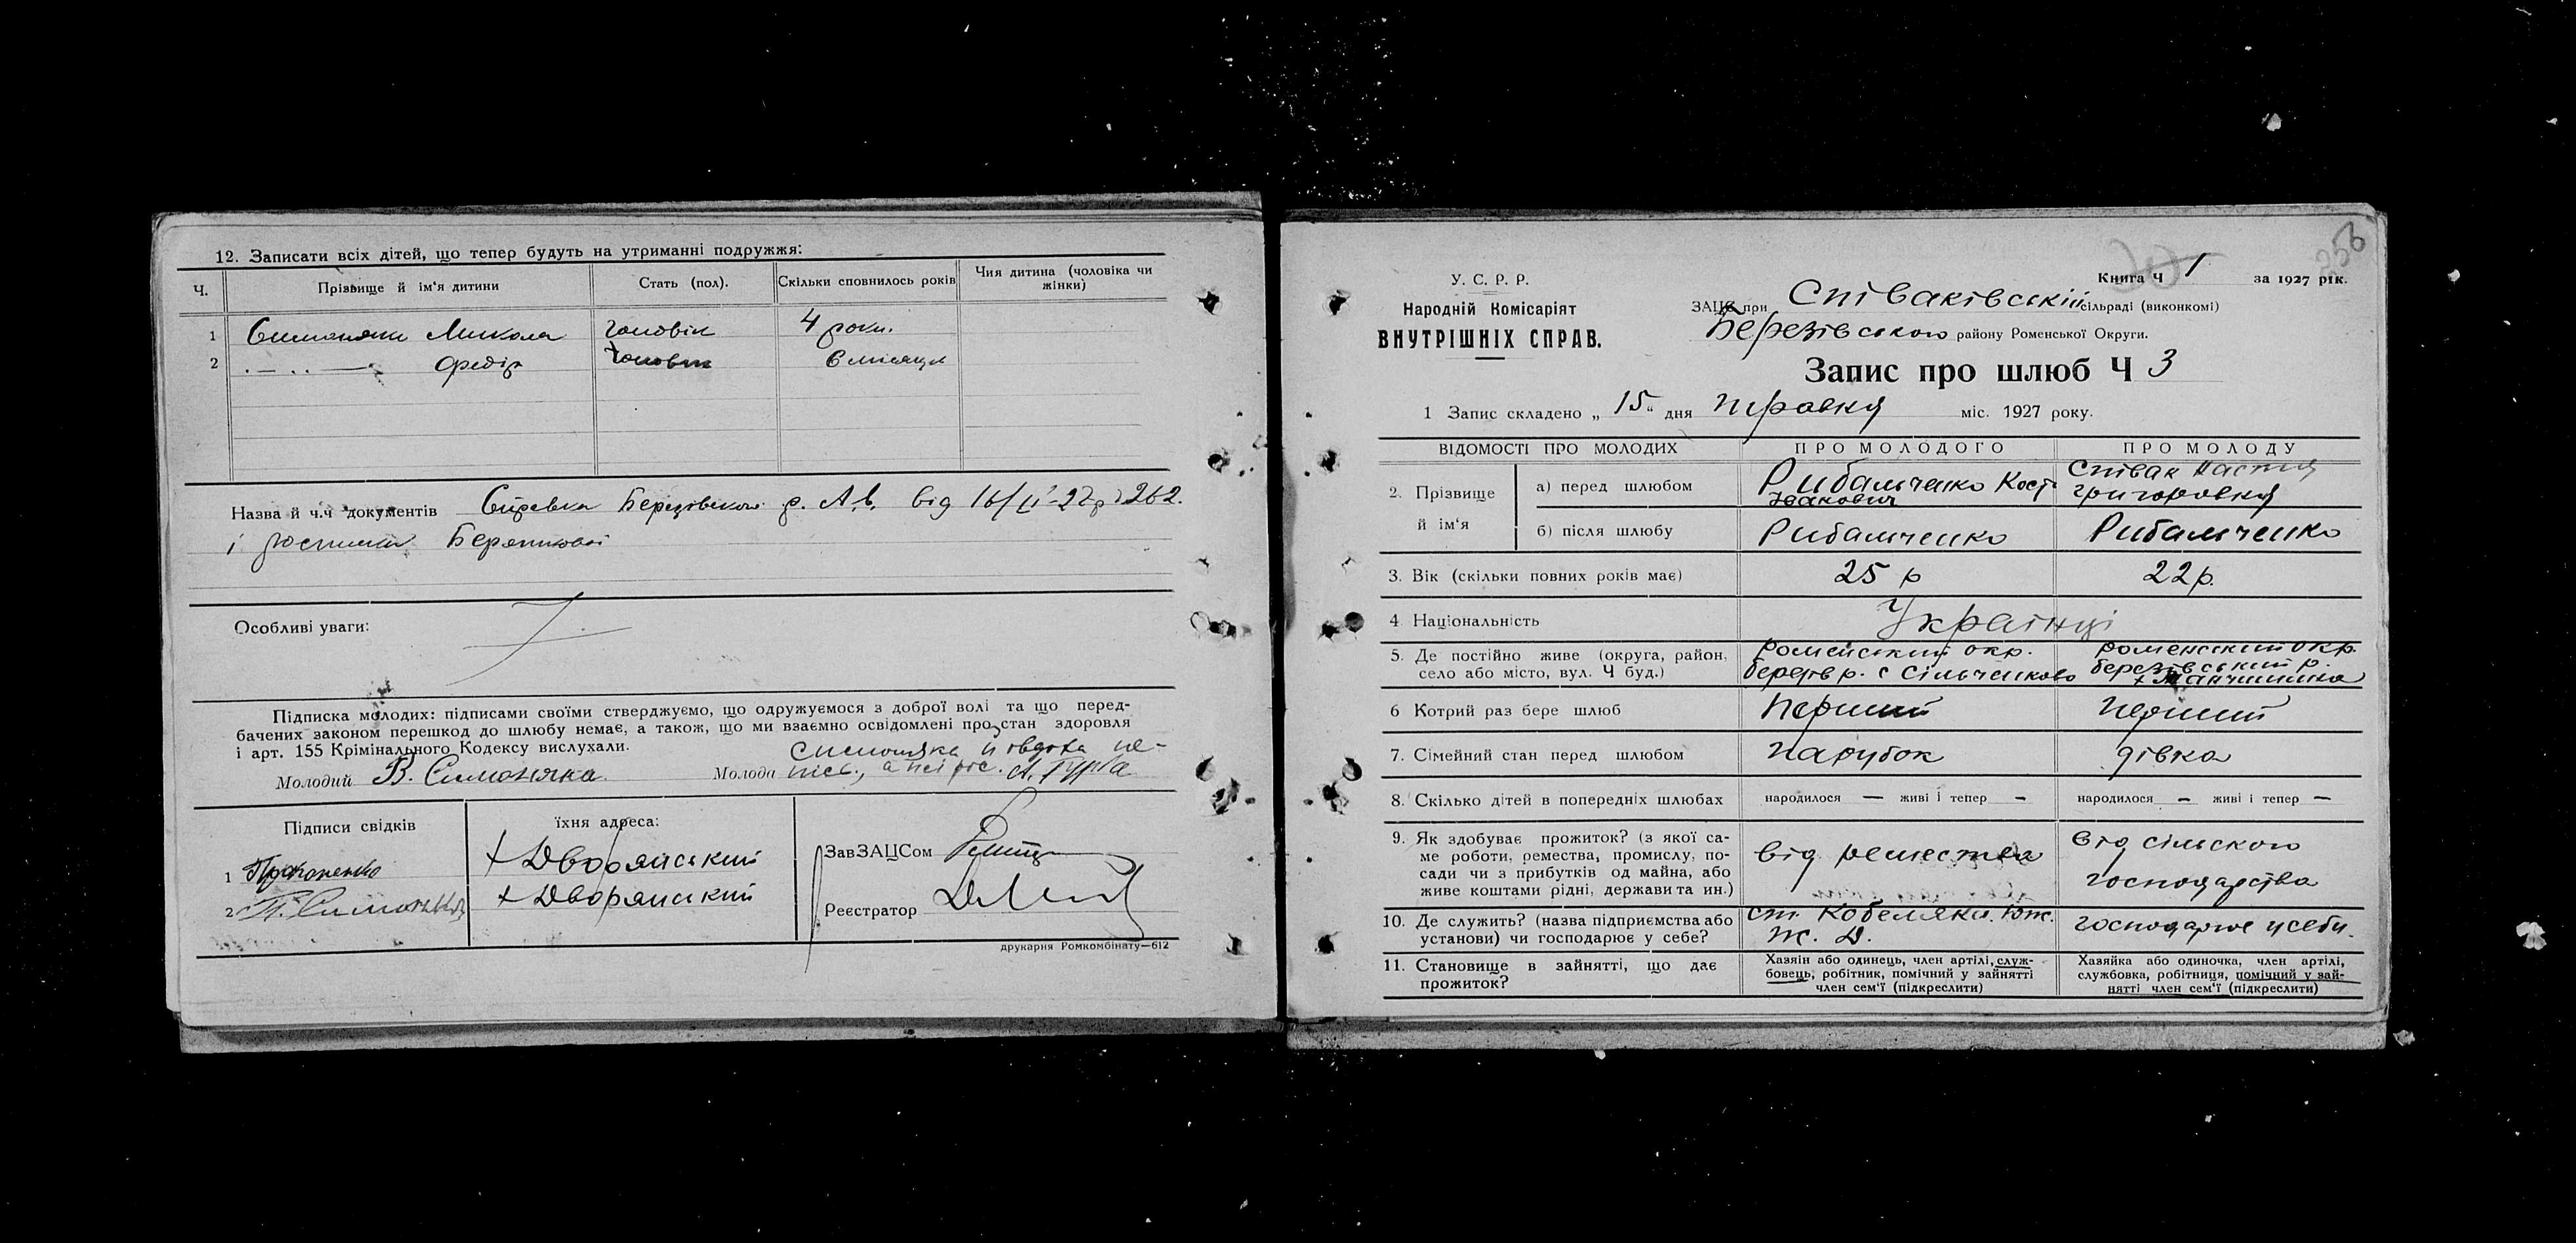 12. Записати всіх дітей, що тепер будуть на утриманні подружжя:
Ч. Прізвище й ім'я дитини Стать (пол). Скільки сповнилось років Чия дитина (чоловіка чи жінки)
1 Симоняки Микола чоловік 4 роки.
2 Федір чоловік 6 місяців
Назва й ч.ч документів Справка Березівського від 16/ -27р 262.
і
Особливі уваги:
Підписка молодих: підписами своїми стверджуємо, що одружуємося з доброї волі та що перед-
бачених законом перешкод до шлюбу немає, а також, що ми взаємно освідомлені про стан здоровля
і арт. 155 Крімінального Кодексу вислухали.
Молодий В. Симоняка Молода
Підписи свідків їхня адреса:
1 Прокопенко х Дворянський
2 П. х Дворянський
ЗавЗАЦСом
Реєстратор
друкарня Ромкомбінату—612
256
Книга Ч 1 за 1927 рік.
У. С. Р. Р.
Народній Комісаріят
ВНУТРІШНІХ СПРАВ.
ЗАЦС при Співаківській сільраді (виконкомі)
Березівського району Роменської Округи.
Запис про шлюб Ч 3
1 Запис складено „ 15 " дня травня міс. 1927 року.
ВІДОМОСТІ ПРО МОЛОДИХ ПРО МОЛОДОГО ПРО МОЛОДУ
2. Прізвище й ім'я а) перед шлюбом Рибальченко Кост Івакович Співак Настя Григоровня
б) після шлюбу Рибальченко Рибальченко
3. Вік (скільки повних років має) 25 р 22 р.
4 Національність Українці
5. Де постійно живе (округа, район, село або місто, вул. Ч буд.) роменський окр. березів р. с Сільченково роменський окр. березівський р.
6 Котрий раз бере шлюб Перший Перший
7. Сімейний стан перед шлюбом парубок дівка
8. Скілько дітей в попередніх шлюбах народилося — живі і тепер — народилося — живі і тепер —
9. Як здобуває прожиток? (з якої са-
ме роботи, ремества, промислу, по-
сади чи з прибутків од майна, або
живе коштами рідні, держави та ин.) від ремества від сільского господарства
10. Де служить? (назва підприємства або
установи) чи господарює у себе? ст. Кобеляки. Юж. Ж. Д. господарює у себи.
11. Становище в зайнятті, що дає
прожиток? Хазяін або одинець, член артілі, служ-
бовець, робітник, помічний у зайнятті
член сем'ї (підкреслити) Хазяйка або одиночка, член артілі,
службовка, робітниця, помічний у зай-
нятті член сем'ї (підкреслити)